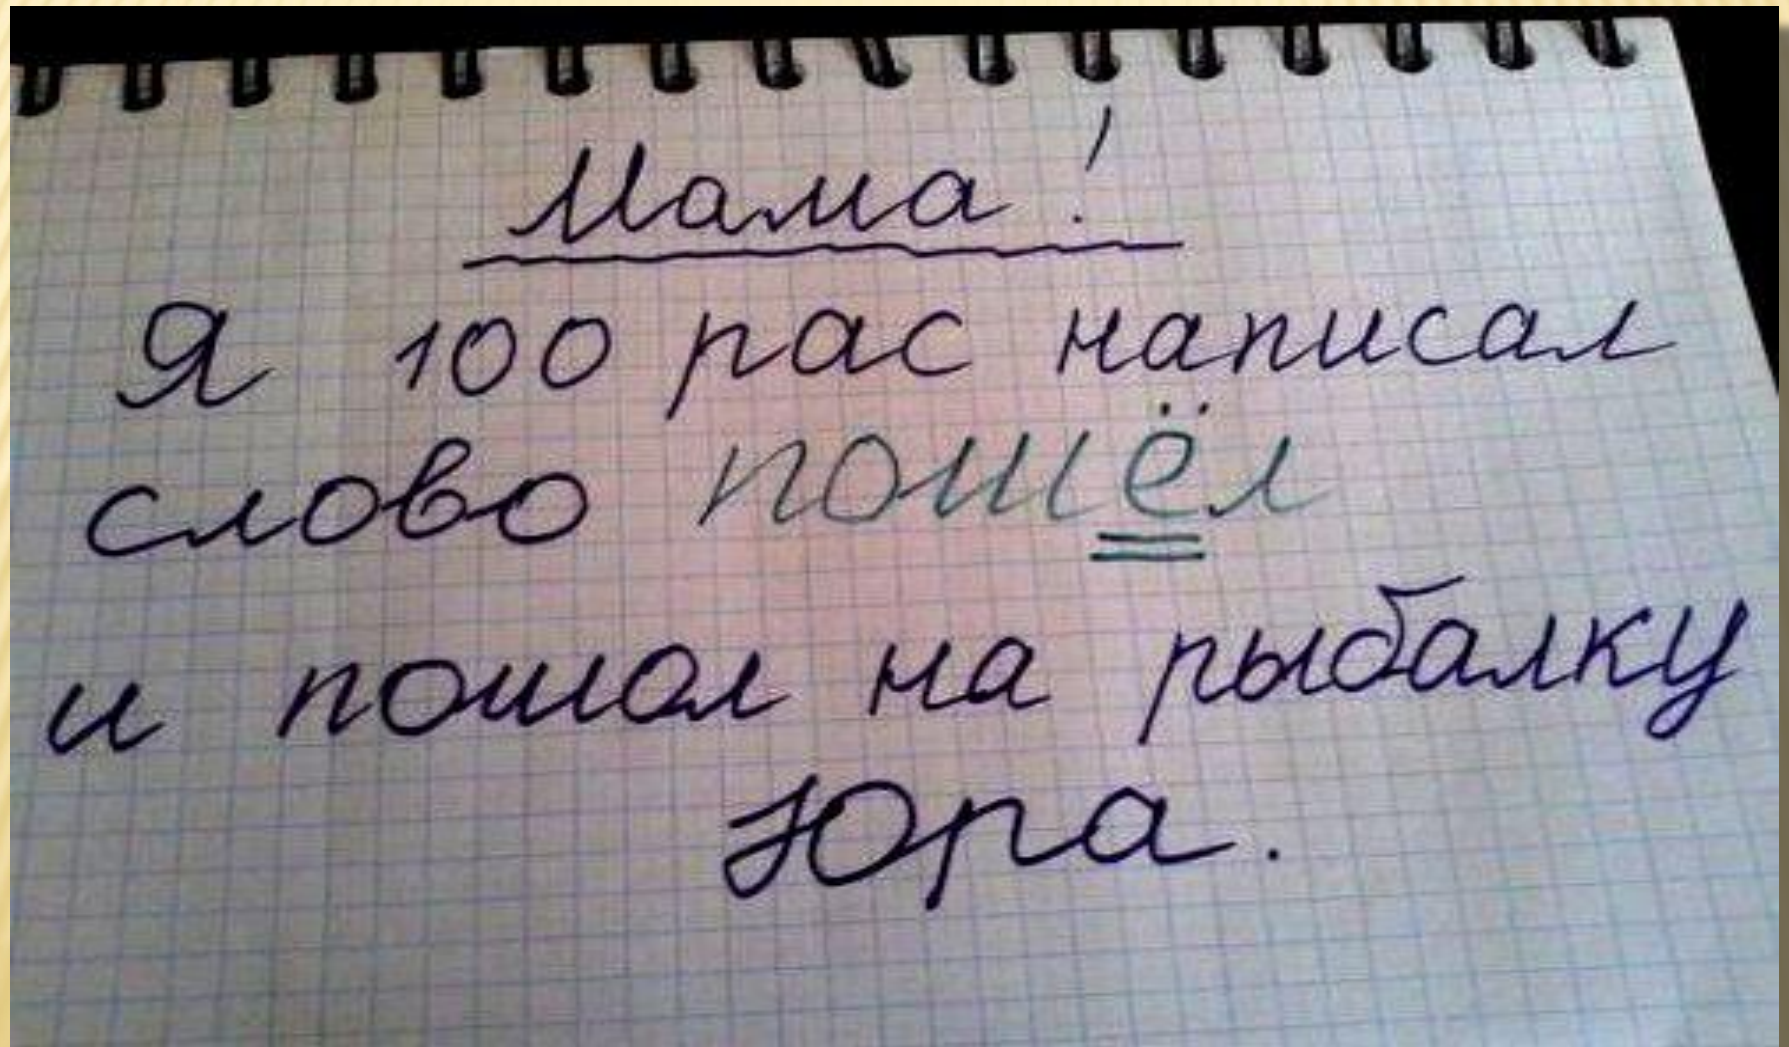 Мама!
Я 100 рас написал
слово пошёл
и пошол на рыбалку
Юра.